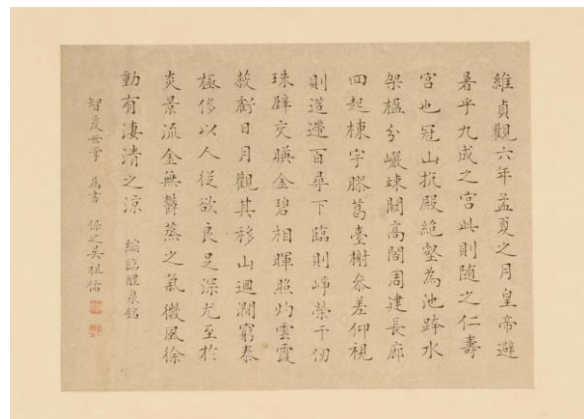 維貞觀六年孟夏之月皇帝避
暑乎九成之宮此則隨之仁壽
宮也冠山抗殿絕壑為池跨水
架楹分巖竦闕高閣周建長廊
四起棟宇膠葛臺榭參差仰視
則迢遞百尋下臨則崢嶸千仞
珠璧交暎金碧相暉照灼雲霞
蔽虧日月觀其移山迴澗窮泰
極侈以人從欲良足深尤至於
炎景流金無鬱蒸之氣微風徐
動有淒清之涼 縮臨醴泉銘
智世掌 屬書 保之吳祖佑